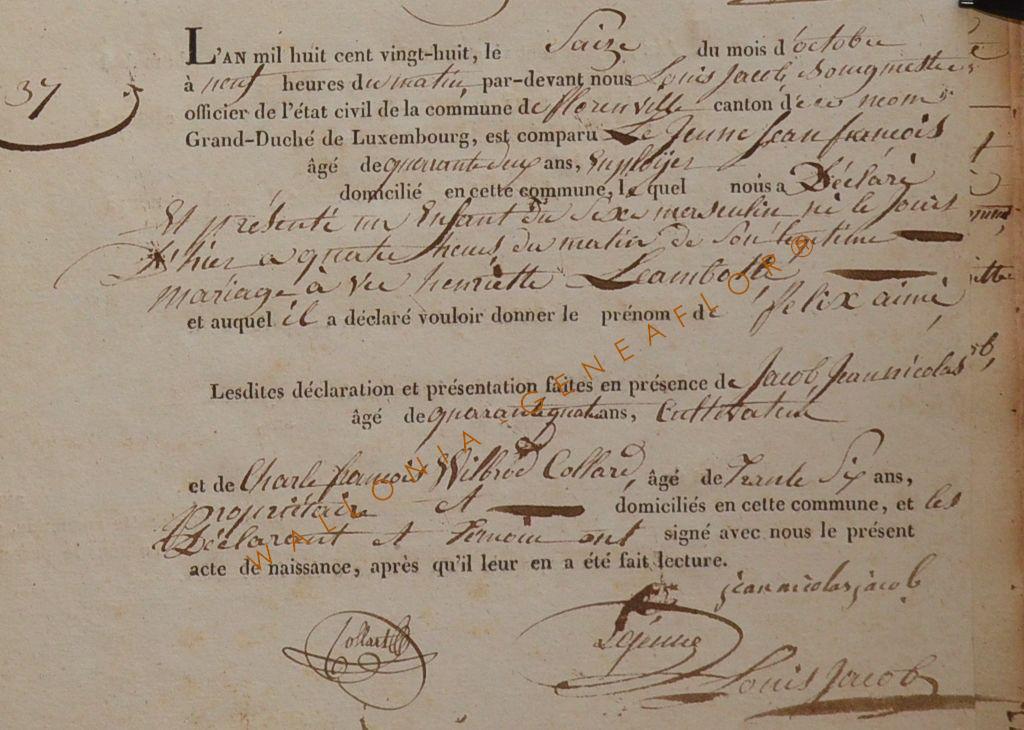 37
L'AN mil huit cent vingt-huit, le Saize du mois d'octobre
à neuf heures du matin par-devant nous Louis Jacob, Bourgmestre
officier de l'état civil de la commune de florenville canton de ce nom
Grand-Duché de Luxembourg, est comparu Le Jeune Jean françois
âgé de quarante deux ans, Employer
domicilié en cette commune, le quel nous a Déclaré
Et présenté un Enfant du Sixe masculin né le jours
d'hier a quatre heures du matin de Son legitime
mariage à Vec henriette Leambotte
et auquel il a déclaré vouloir donner le prénom de felix aimé
Lesdites déclaration et présentation faites en présence de Jacob, Jean nicolas
âgé de quarante quatre ans, Cultivateur
et de Charle françois Wilbrod Collard, âgé de Trente Six ans,
propriétaire et domiciliés en cette commune, et les
Déclarant et Temoin ont signé avec nous le présent
acte de naissance, après qu'il leur en a été fait lecture.
jean nicolas jacob
Collart
Lejeune
Louis Jacob
WALLONIA-GENEAFLOR®